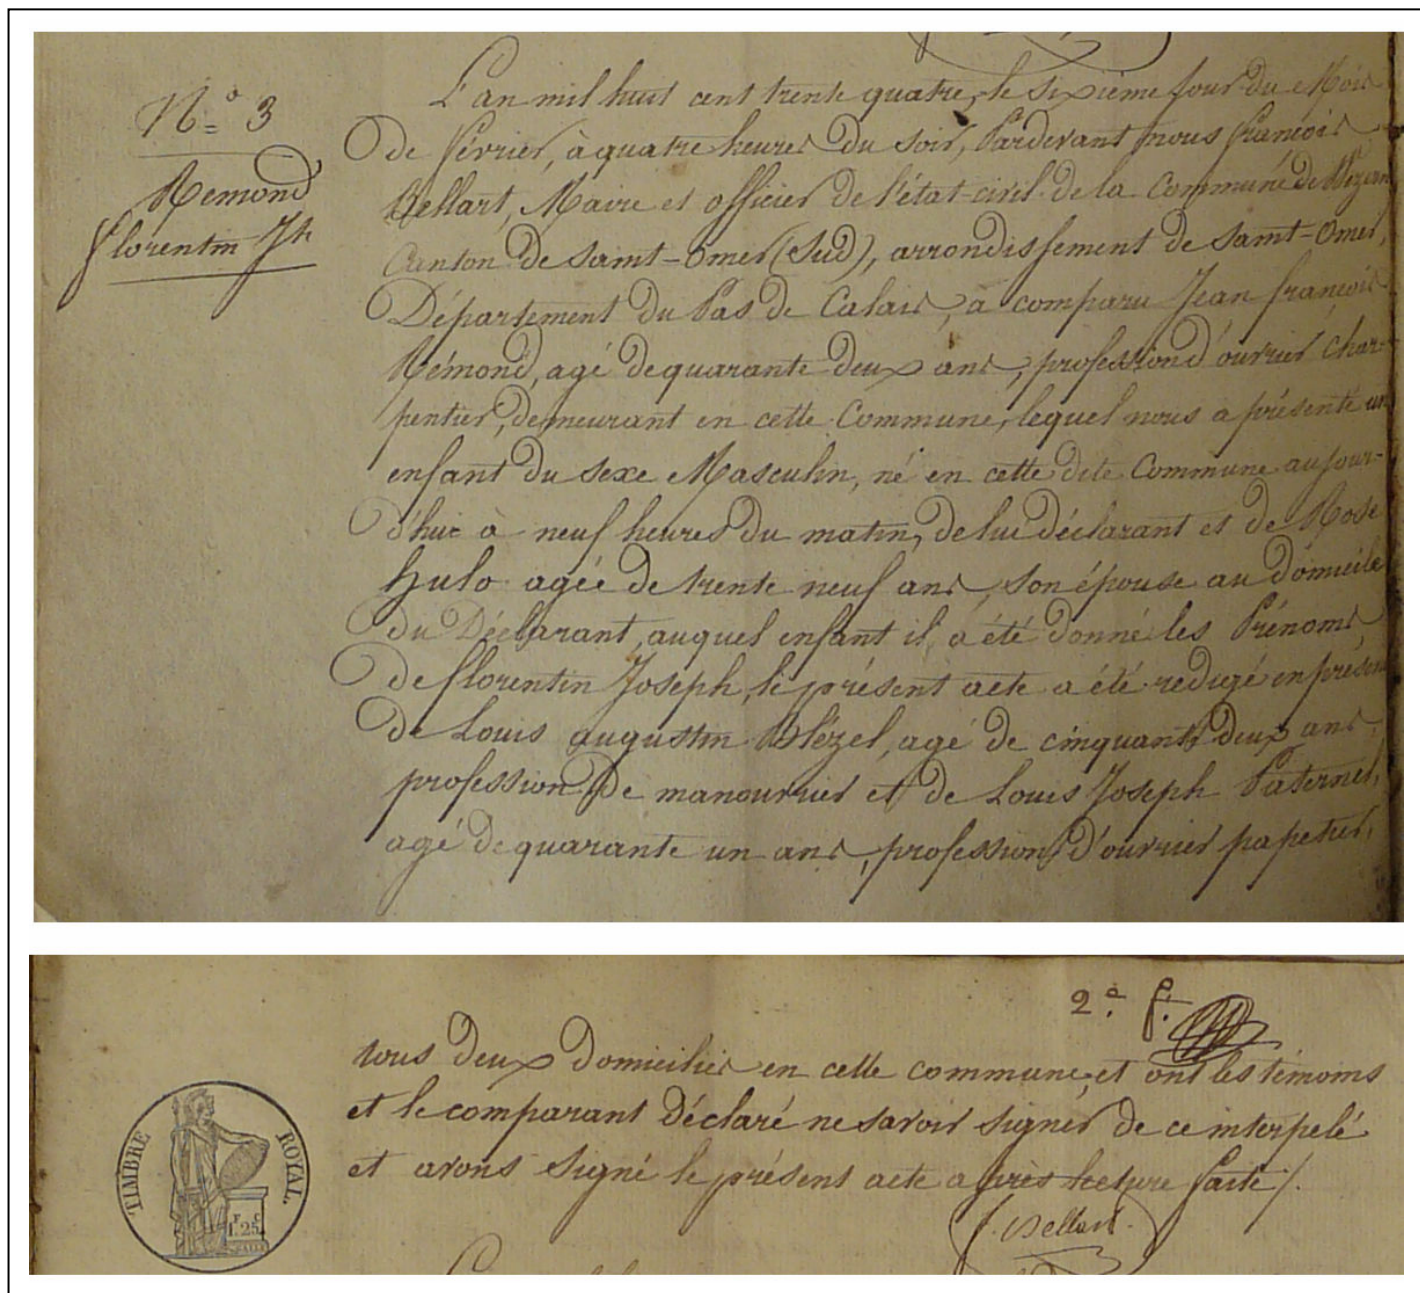 N.º 3
Remond
florentin Jh
L'an mil huit cent trente quatre, le sixième jour du Mois
de février, à quatre heures du soir, Pardevant nous françois
Dellart, Maire et officier de l'état-civil de la Commune de
Canton de Saint-Omer (Sud), arrondissement de Saint-Omer,
Département du Pas de Calais, a comparu Jean françois
Rémond, agé de quarante deux ans, profession d'ouvrier char-
pentier, demeurant en cette Commune, lequel nous a présenté un
enfant du sexe Masculin, né en cette dite Commune aujour-
d'hui à neuf heures du matin, de lui déclarant et de Rose
hulo agée de trente neuf ans, son épouse au domicile
du Déclarant, auquel enfant il a été donné les Prénoms,
de florentin Joseph, le présent acte a été redigé en présen
de Louis augustin Wlézel, agé de cinquante deux ans,
profession de manouvrier et de Louis Joseph Paternel,
agé de quarante un ans, profession d'ouvrier papetier,
2.e f.
tous deux domiciliés en cette commune, et ont les témoins
et le comparant déclaré ne savoir signer de ce interpelé
et avons signé le présent acte après lecture faite ./.
f. Dellart.
TIMBRE ROYAL.
1 F 25 C